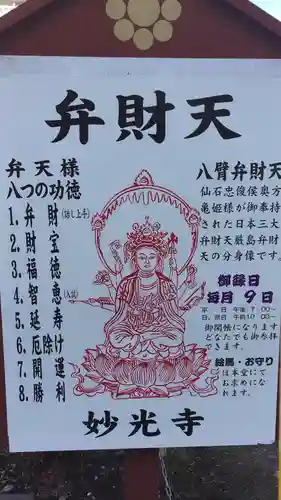 弁財天
弁天様
八つの功徳
1. 弁財(話し上手)
2. 財宝
3. 福徳
4. 智恵(入試)
5. 延寿
6. 厄除け
7. 開運
8. 勝利
八臂弁財天
仙石忠俊侯奥方
亀姫様が御奉持
された日本三大
弁財天厳島弁財
天の分身像です。
御縁日
毎月 9日
平日 午後7:00~
日、祭日 午前10:00~
御開帳になります
どなたでも御参拝
できます。
絵馬・お守り
は本堂にて
お求めにな
れます。
妙光寺